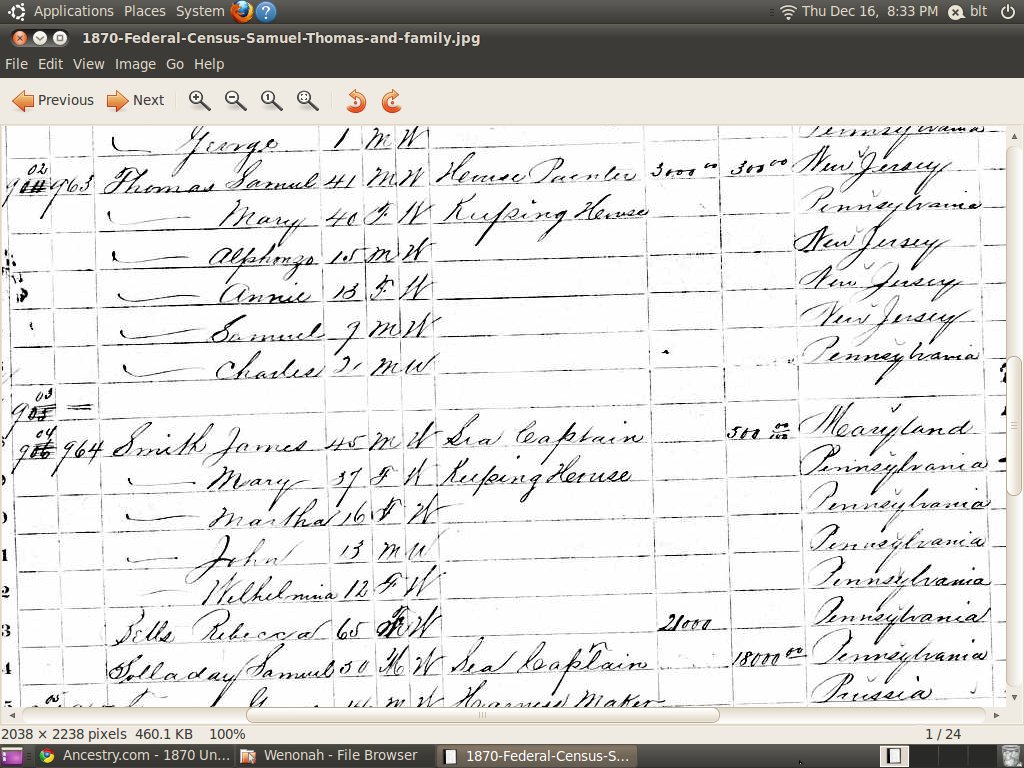 Applications Places System ? Thu Dec 16, 8:33 PM blt
1870-Federal-Census-Samuel-Thomas-and-family.jpg
File Edit View Image Go Help
Previous Next
George 1 M W Pennsylvania
02 963 Thomas Samuel 41 M W House Painter 3000 00 300 00 New Jersey
Mary 40 F W Keeping House Pennsylvania
Alphonzo 15 M W New Jersey
Annie 13 F W New Jersey
Samuel 9 M W New Jersey
Charles M W Pennsylvania
03
04 964 Smith James 45 M W Sea Captain 500 00/100 Maryland
Mary 37 F W Keeping House Pennsylvania
Martha 16 F W Pennsylvania
John 13 M W Pennsylvania
Wilhelmina 12 F W Pennsylvania
Rebecca 65 F W 21000 Pennsylvania
Samuel 50 M W Sea Captain 18000 00 Pennsylvania
05 M W Harness Maker Prussia
2038 × 2238 pixels 460.1 KB 100% 1 / 24
Ancestry.com - 1870 Un... Wenonah - File Browser 1870-Federal-Census-S...